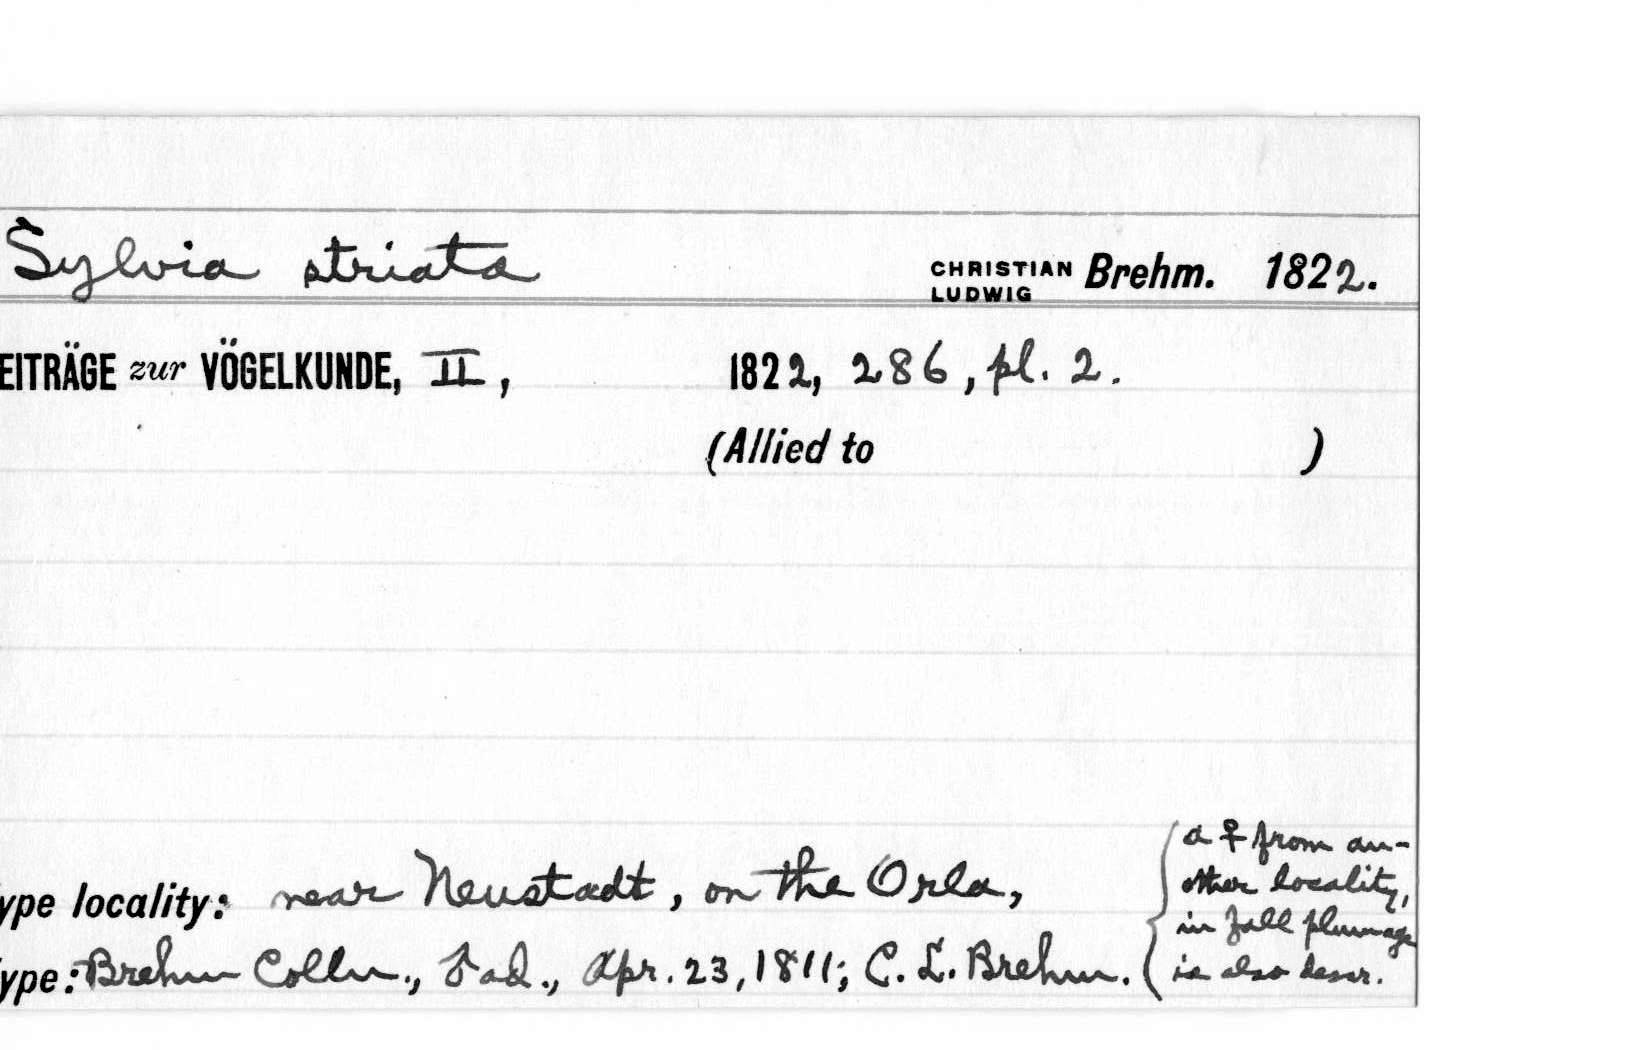 Sylvia striata CHRISTIAN LUDWIG Brehm. 1822.
EITRÄGE zur VÖGELKUNDE, II, 1822, 286, pl. 2.
(Allied to )
ype locality: near Neustadt, on the Orla,
ype: Brehm Colln., ad., Apr. 23, 1811; C. L. Brehm.
a ♀ from an-
other locality,
in fall plumage
is also descr.